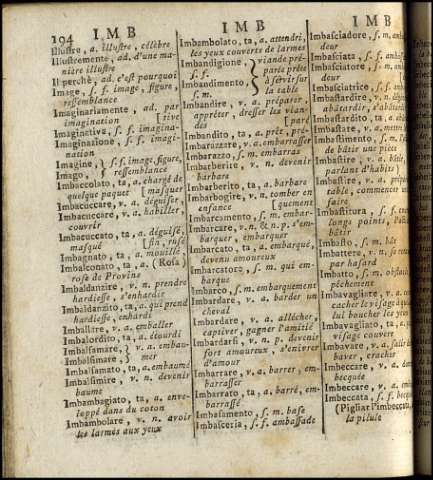 194 IMB
Illustre, a. illustre, célèbre
Illustremente, ad. d'une ma-
nière illustre
Il perchè, ad. c'est pourquoi
Image, s. f. image, figure,
ressemblance
Imaginariamente, ad. par
imagination [tive
Imaginativa, s. f. imagina-
Imaginazione, s. f. imagi-
nation
Imagine, } s. f. image, figure,
Imago, } ressemblance
Imbaccolato, ta, a. chargé de
quelque paquet [masquer
Imbacuccare, v. a. déguiser,
Imbacuccare, v. a. habiller,
couvrir
Imbacuccato, ta, a. déguisé,
masqué
Imbagnato, ta, a. mouillé
Imbalconato, ta, a. (Rosa)
rose de Provins
Imbaldanzire, v. n. prendre
hardiesse, s'enhardir
Imbaldanzito, ta, a. qui prend
hardiesse, enhardi
Imballare, v. a. emballer
Imbalordito, ta, a. étourdi
Imbalsamare, } v. a. embau-
Imbalsimare } mer
Imbalsamato, ta, a. embaumé
Imbalsimire, v. n. devenir
baume
Imbambagiato, ta, a. enve-
loppé dans du coton
Imbambolare, v. n. avoir
les larmes aux yeux
IMB
Imbambolato, ta, a. attendri,
les yeux couverts de larmes
Imbandigione, } viande pré-
s. f. } parée prête
Imbandimento, } à servir sur
s. m. } la table
Imbandire, v. a. préparer,
apprêter, dresser les vian-
des [paré
Imbandito, ta, a. prêt, pré-
Imbarazzare, v. a. embarrasser
Imbarazzo, s. m. embarras
Imbarberire, v. n. devenir
barbare
Imbarberito, ta, a. barbare
Imbarbogire, v. n. tomber en
enfance [quement
Imbarcamento, s. m. embar-
Imbarcare, v. n. & n. p. s'em-
barquer, embarquer
Imbarcato, ta, a. embarqué,
devenu amoureux
Imbarcatore, s. m. qui em-
barque
Imbarco, s. m. embarquement
Imbardare, v. a. barder un
cheval
Imbardare, v. a. allécher,
captiver, gagner l'amitié
Imbardarsi, v. n. p. devenir
fort amoureux, s'enivrer
d'amour
Imbarrare, v. a. barrer, em-
barrasser
Imbarrato, ta, a. barré, em-
barrassé
Imbasamento, s. m. base
Imbasceria, s. f. ambassade
IMB
Imbasciadore, s. m.
deur
Imbasciata, s. f.
Imbasciatore, s. m.
deur
Imbasciatrice, s. f.
Imbastardire, v. n.
abâtardir,
Imbastardito, ta, a.
Imbastare, v. a. mettre
Imbastimento, s. m.
de bâtir une pièce
Imbastire, v. a. bâtir,
parlant d'habits
Imbastire, v. a.
table, commencer
faire
Imbastitura, s. f.
longs points,
bâtir
Imbasto, s. m. bât
Imbattere, v. n.
par hasard
Imbatto, s. m.
pêchement
Imbavagliare, v. a.
cacher le visage à
lui boucher les yeux
Imbavagliato, ta, a.
visage couvert
Imbavare, v. a. salir
baver, cracher
Imbeccare, v. a.
becquée
Imbeccare, v. a.
Imbeccata, s. f.
(Pigliar l'imbeccata)
la pilule